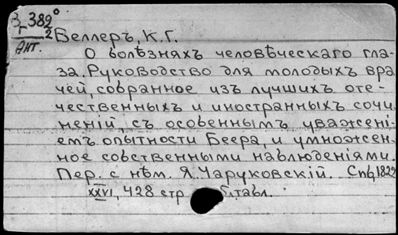 З 382°
Г 2
Ант.
Беллеръ, К. Г.
О болѣзняхъ человѣческаго гла-
за. Руководство для молодыхъ вра
чей, собранное изъ лучшихъ оте-
чественныхъ и иностранныхъ сочи
неній, съ особеннымъ уважені-
емъ опытности Беера, и умножен-
ное собственными наблюденіями.
Пер. с нѣм. Я. Чаруковскій. Спб, 1822
XXVI, 428 стр табл.